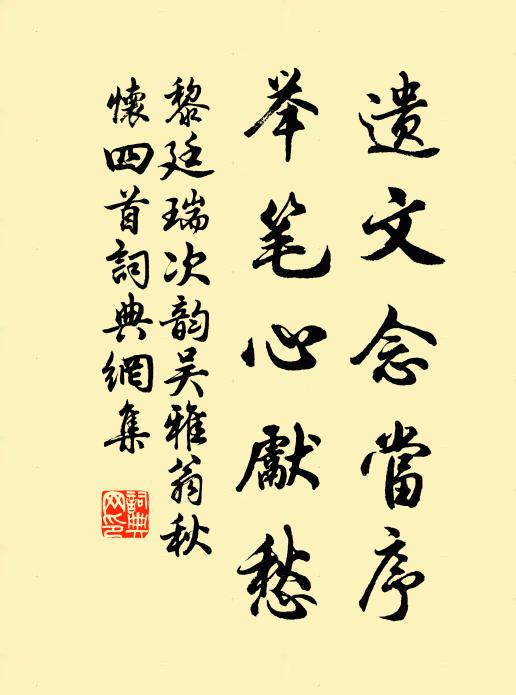 遗文念當序
举笔心獻愁
黎廷瑞次韵吴雅翁秋
懷四首詞典網集
詞典
网印